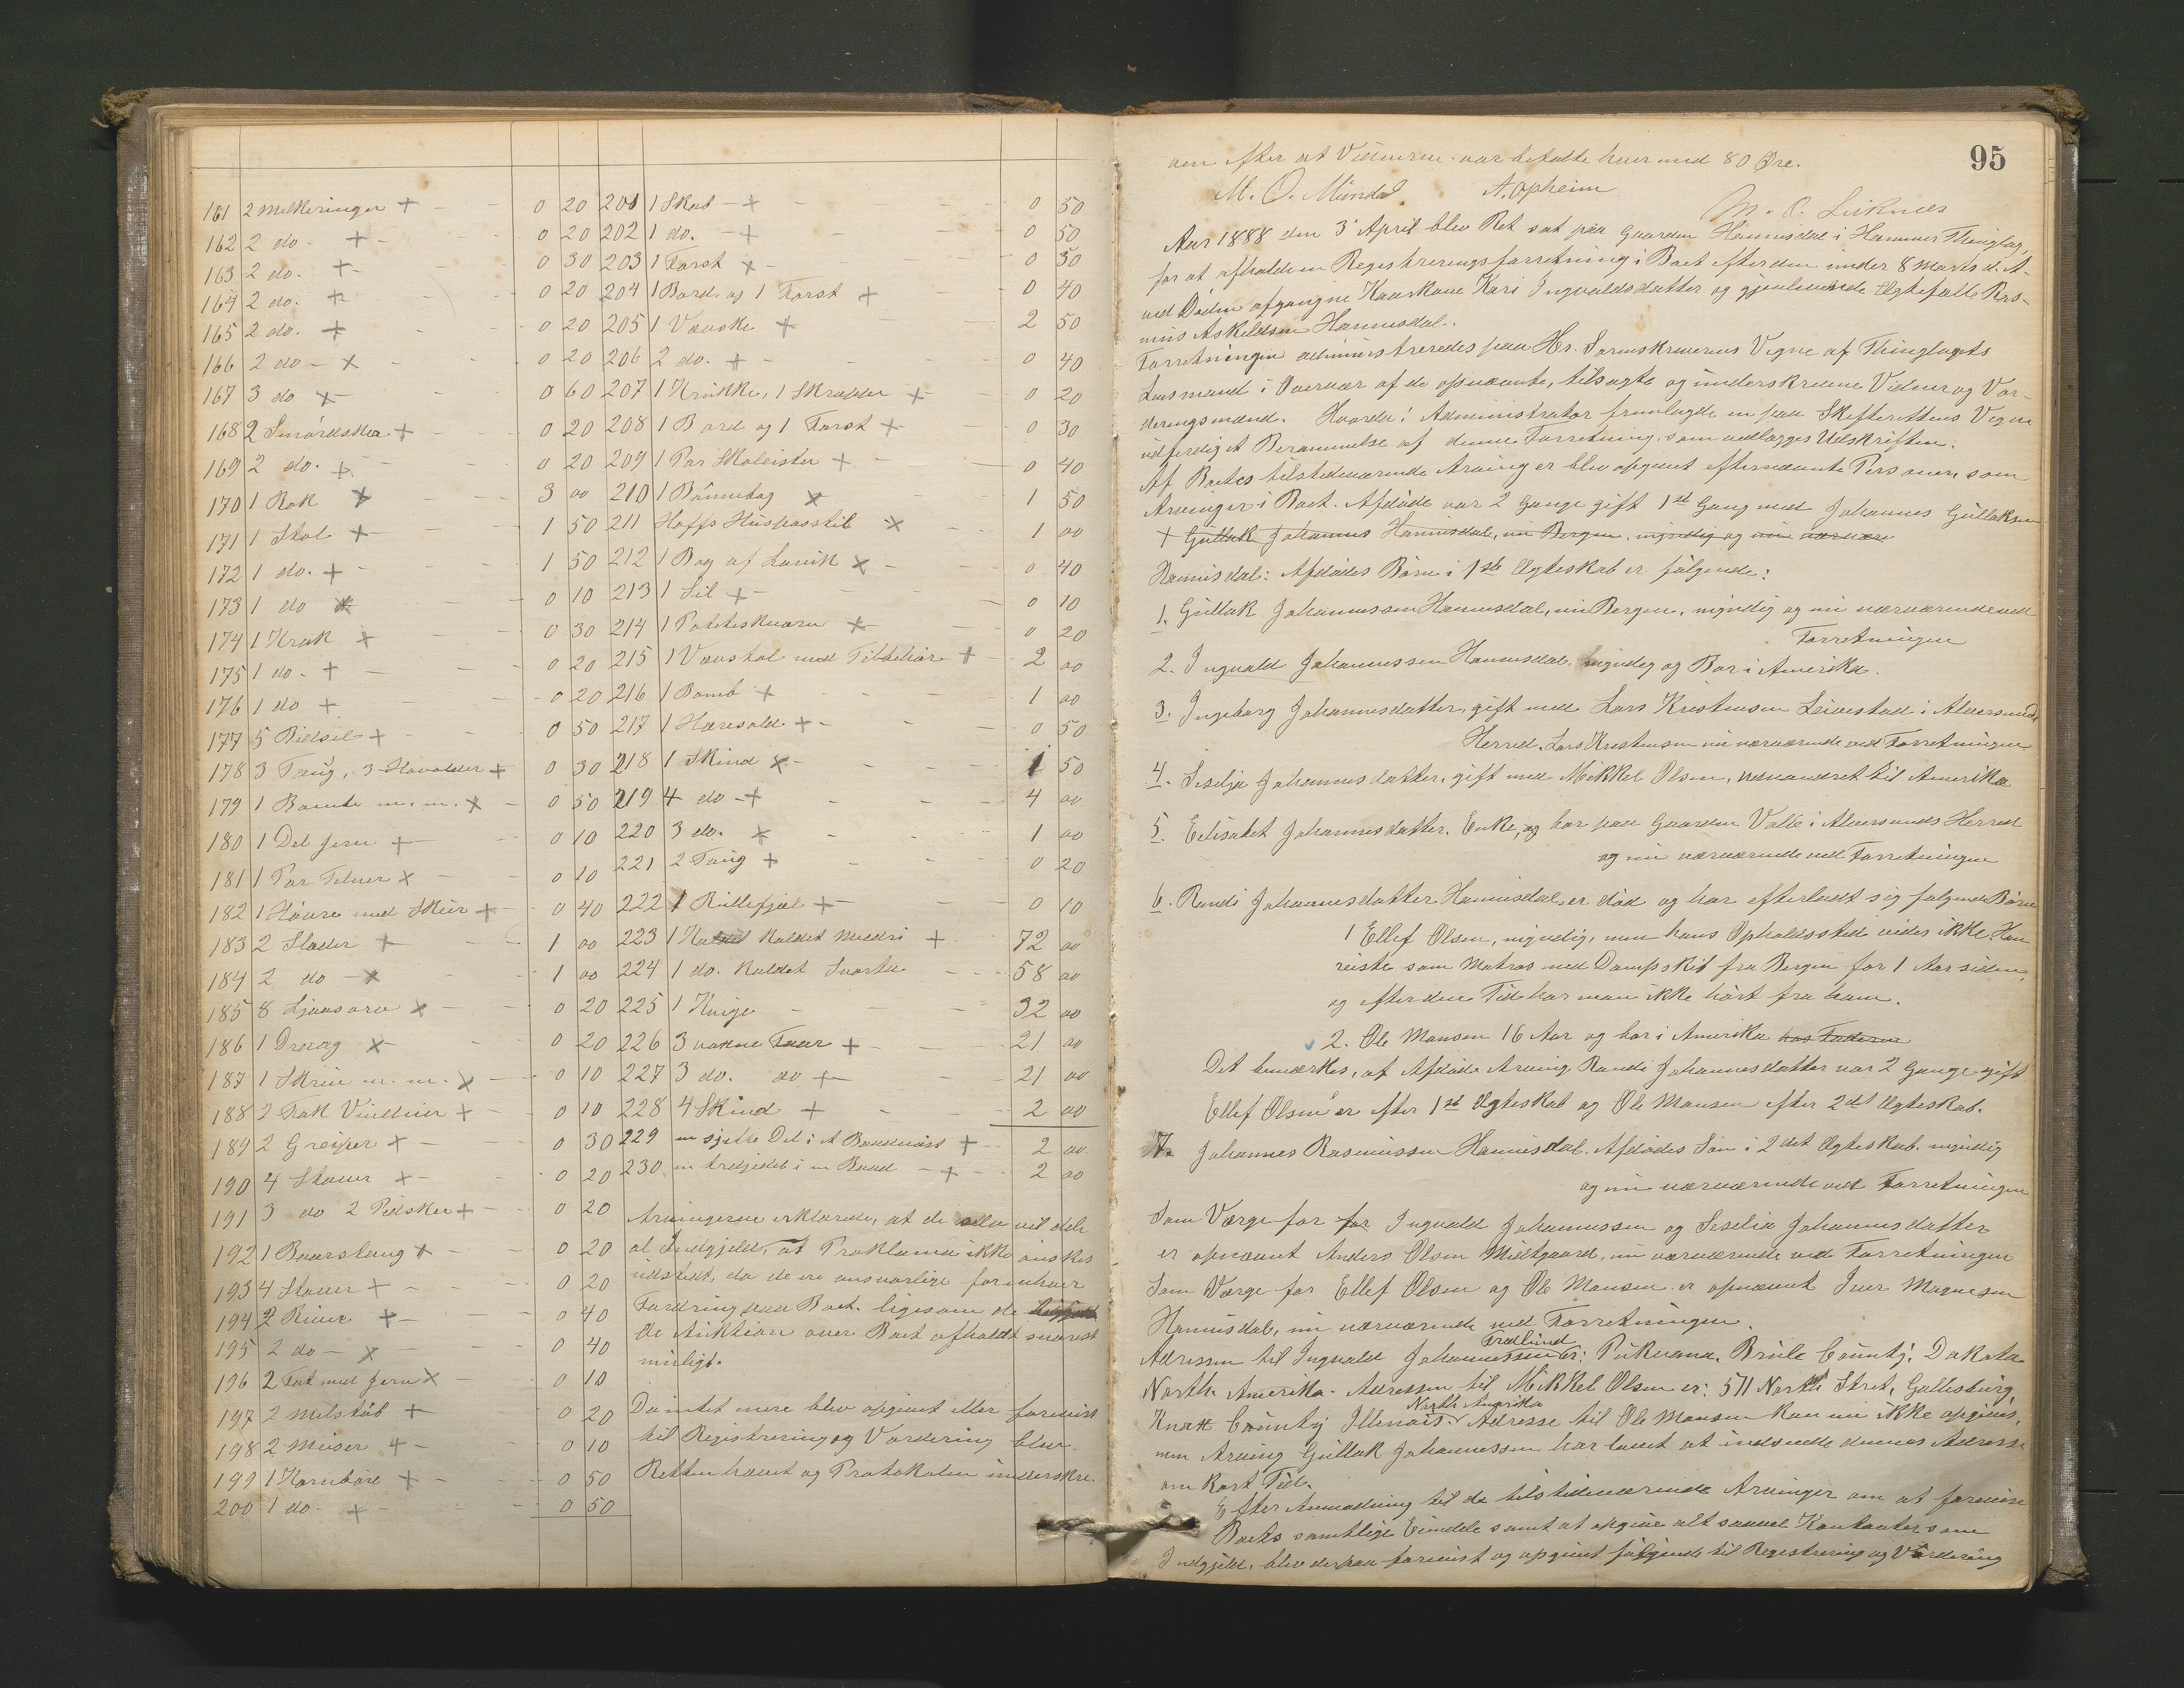 161 2 Melkeringer + 0 20
162 2 do - + 0 20
163 2 do. + 0 30
164 2 do. + 0 20
165 2 do. + 0 20
166 2 do - x 0 20
167 3 do x 0 60
168 2 + 0 20
169 2 do. + 0 20
170 1 Rok x 3 00
171 1 Stol + 1 50
172 1 do. + 1 50
173 1 do x 0 10
174 1 Krak + 0 30
175 1 do - + 0 20
176 1 do + 0 20
177 5 + 0 50
178 3 Taug, 3 + 0 30
179 1 m. m. x 0 50
180 1 Del Jern + 0 10
181 1 Par x 0 10
182 1 med + 0 40
183 2 Slæder + 1 00
184 2 do - x 1 00
185 8 x 0 20
186 1 Dræg x 0 20
187 1 Skrin m. m. x 0 10
188 2 Fak Vinduer + 0 10
189 2 Greiper + 0 30
190 4 Staver + 0 20
191 3 do 2 Pidsker + 0 20
192 1 Baarstang + 0 20
193 4 Staver + 0 20
194 2 River + 0 40
195 2 do - x 0 40
196 2 Fat med Jern x 0 10
197 2 + 0 20
198 2 Meiser + 0 10
199 1 + 0 50
200 1 do - + 0 50
201 1 Skab - + 0 50
202 1 do. - + 0 50
203 1 Forst x 0 30
204 1 Bord og 1 Forst + 0 40
205 1 Vævske + 2 50
206 2 do. + 0 40
207 1 Krukke, 1 Skrabber + 0 20
208 1 Bord og 1 Forst + 0 30
209 1 Par Skoleister + 0 40
210 1 Bønnebog x 1 50
211 Hoffs Huspostil x 1 00
212 1 Bog af x 0 40
213 1 Sil + 0 10
214 1 Poteteskværn x 0 20
215 1 Vævstol med Tilbehør + 2 00
216 1 Bomb + 1 00
217 1 + 0 50
218 1 Skind x 1 50
219 4 do - + 4 00
220 3 do. x 1 00
221 2 Taug + 0 20
222 1 Rullefjæl + 0 10
223 1 kaldet + 72 00
224 1 do. kaldet Svarta 58 00
225 1 Kvige 32 00
226 3 voxne Faar + 21 00
227 3 do. do + 21 00
228 4 Skind + 2 00
229 en sjette Del i et Baadnøst + 2 00
230 en tredjedel i en Baad - + 2 00
Arvingerne erklærede, at de selv vil dele
al Indgjeld, at Proklama ikke ønskes
udstedt, da de ere ansvarlige for enhver
Fordring paa Boet. ligesom de
de Auktion over Boet afholdt snarest
muligt.
Da intet mere blev opgivet eller forevist
til Registrering og Vurdering blev
Retten hævet og Protokolen underskre-
95
ven efter at Vidnerne var betalte hver med 80 Øre.
M. O. Mundal. A. Opheim
M. O. Seiknæs
Aar 1888 den 3 April blev Ret sat paa Gaarden Hannisdal i Hammer Thinglag,
for at afholde en Registreringsforretning i Boet efter den under 8 Marts d. A.
ved Døden afgangne Kaarkone Kari Ingvaldsdatter og gjenlevende Ægtefælle Ras-
mus Askeldsen Hannisdal.
Forretningen administreredes paa Hr. Sorenskriverens Vegne af Thinglagets
Lensmand i Overvær af de opnævnte, tilsagte og underskrevne Vidner og Vur-
deringsmænd. Hvorda! Administrator fremlagde en paa Skifterettens Vegne
udferdiget Berammelse af denne Forretning, som vedlægges Udskriften.
Af Boets tilstedeværende Arvinger blev opgivet efternævnte Personer, som
Arvinger i Boet. Afdøde var 2 Gange gift 1ste Gang med Johannes Gullaksen
+ Gullak Johannes Hannisdal, nu Bergen, myndig og nu nærvære
Hannisdal: Afdødes Børn i 1ste Ægteskab er følgende:
1. Gullak Johannessen Hannisdal, nu Bergen, myndig og nu nærværende ved
Forretningen
2. Ingvald Johannessen Hannisdal, myndig og Bor i Amerika.
3. Ingeborg Johannesdatter, gift med Lars Kristensen Leivestad i Alversunds
Herred. Lars Kristensen nu nærværende ved Forretningen
4. Seselja Johannesdatter, gift med Mikkel Olsen, udvandret til Amerika
5. Eelisabet Johannesdatter, Enke, og bor paa Gaarden Valle i Alversunds Herred
og nu nærværende ved Forretningen
6. Randi Johannesdatter Hannisdal er død og har efterladt sig følgende Børn
1 Ellef Olsen, myndig, men hans Opholdssted vides ikke. Han
reiste som Matros med Dampskib fra Bergen for 1 Aar siden,
og efter den Tid har man ikke hørt fra ham.
2. Ole Monsen 16 Aar og bor i Amerika hos Faderen
Det bemærkes, at Afdøde Arving Randi Johannesdatter var 2 Gange gift
Ellef Olsen er efter 1ste Ægteskab og Ole Monsen efter 2det Ægteskab.
7. Johannes Rasmussen Hannisdal. Afdødes Søn i 2det Ægteskab. myndig
og nu nærværende ved Forretningen
Som Værge for for Ingvald Johannessen og Seselia Johannesdatter
er opnævnt Anders Olsen Midtgaard, nu nærværende ved Forretningen
Som Værge for Ellef Olsen og Ole Monsen er opnævnt Iver Magnesen
Hannisdal, nu nærværende ved Forretningen.
Fredlund
Adressen til Ingvald Johannessen er: Pukvana, Brule County, Dakota
North Amerika. Adressen til Mikkel Olsen er: 571 North Stret, Gallesburg,
North Amerika
Knox County Illenois. Adresse til Ole Monsen kan nu ikke opgives,
men Arving Gullak Johannessen har lovet at indsende dennes Adresse
om kort Tid.
Efter Anmodning til de tilstedeværende Arvinger om at forevise
Boets samtlige Eiendele samt at opgive alt saavel Kontanter som
Indgjeld, blev derpaa forevist og opgivet følgende til Registrering og Vurdering